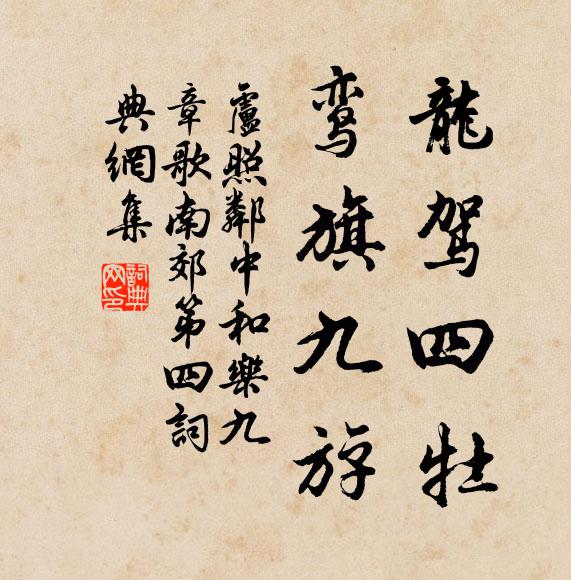 龍駕四牡
鸾旗九斿
盧照鄰中和樂九
章歌南郊第四詞
典網集
詞典網印